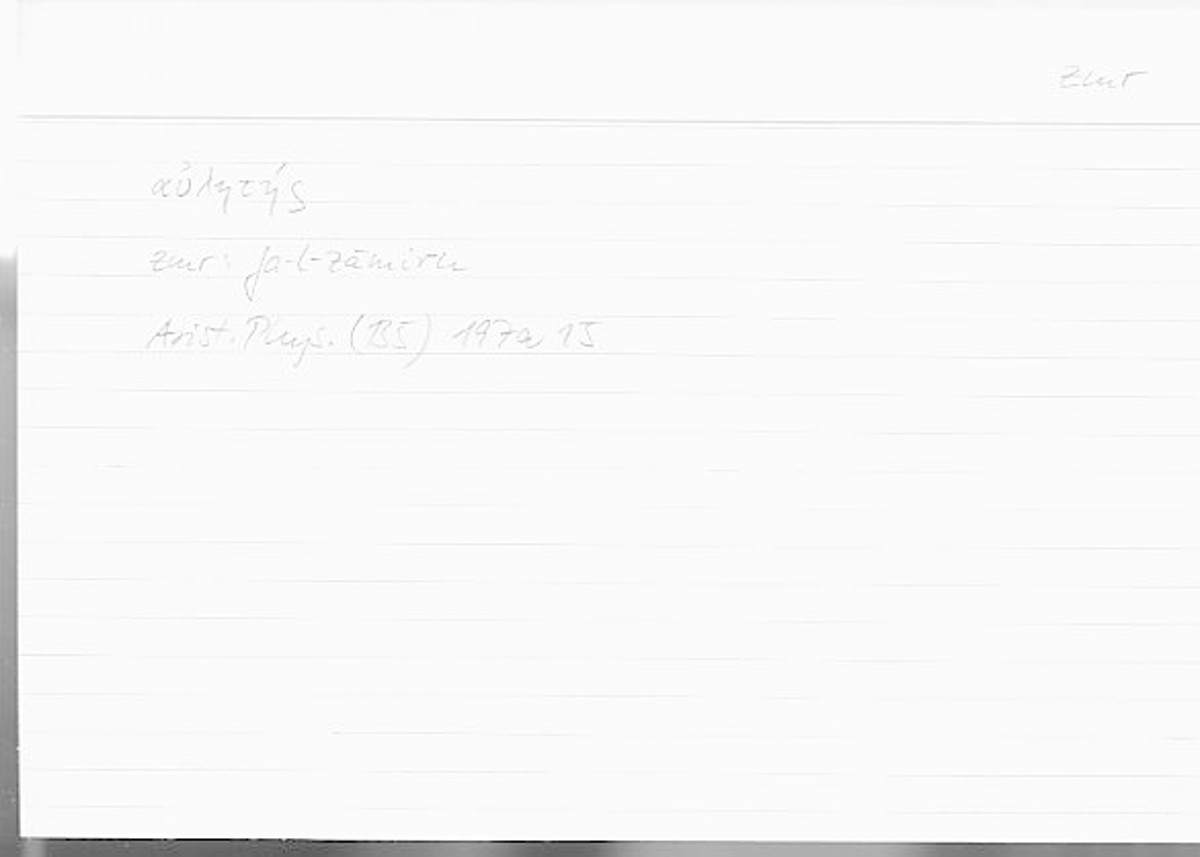 zmr
αὐλητής
zmr: fa-l-zāmiru
Arist. Phys. (B5) 197a 15